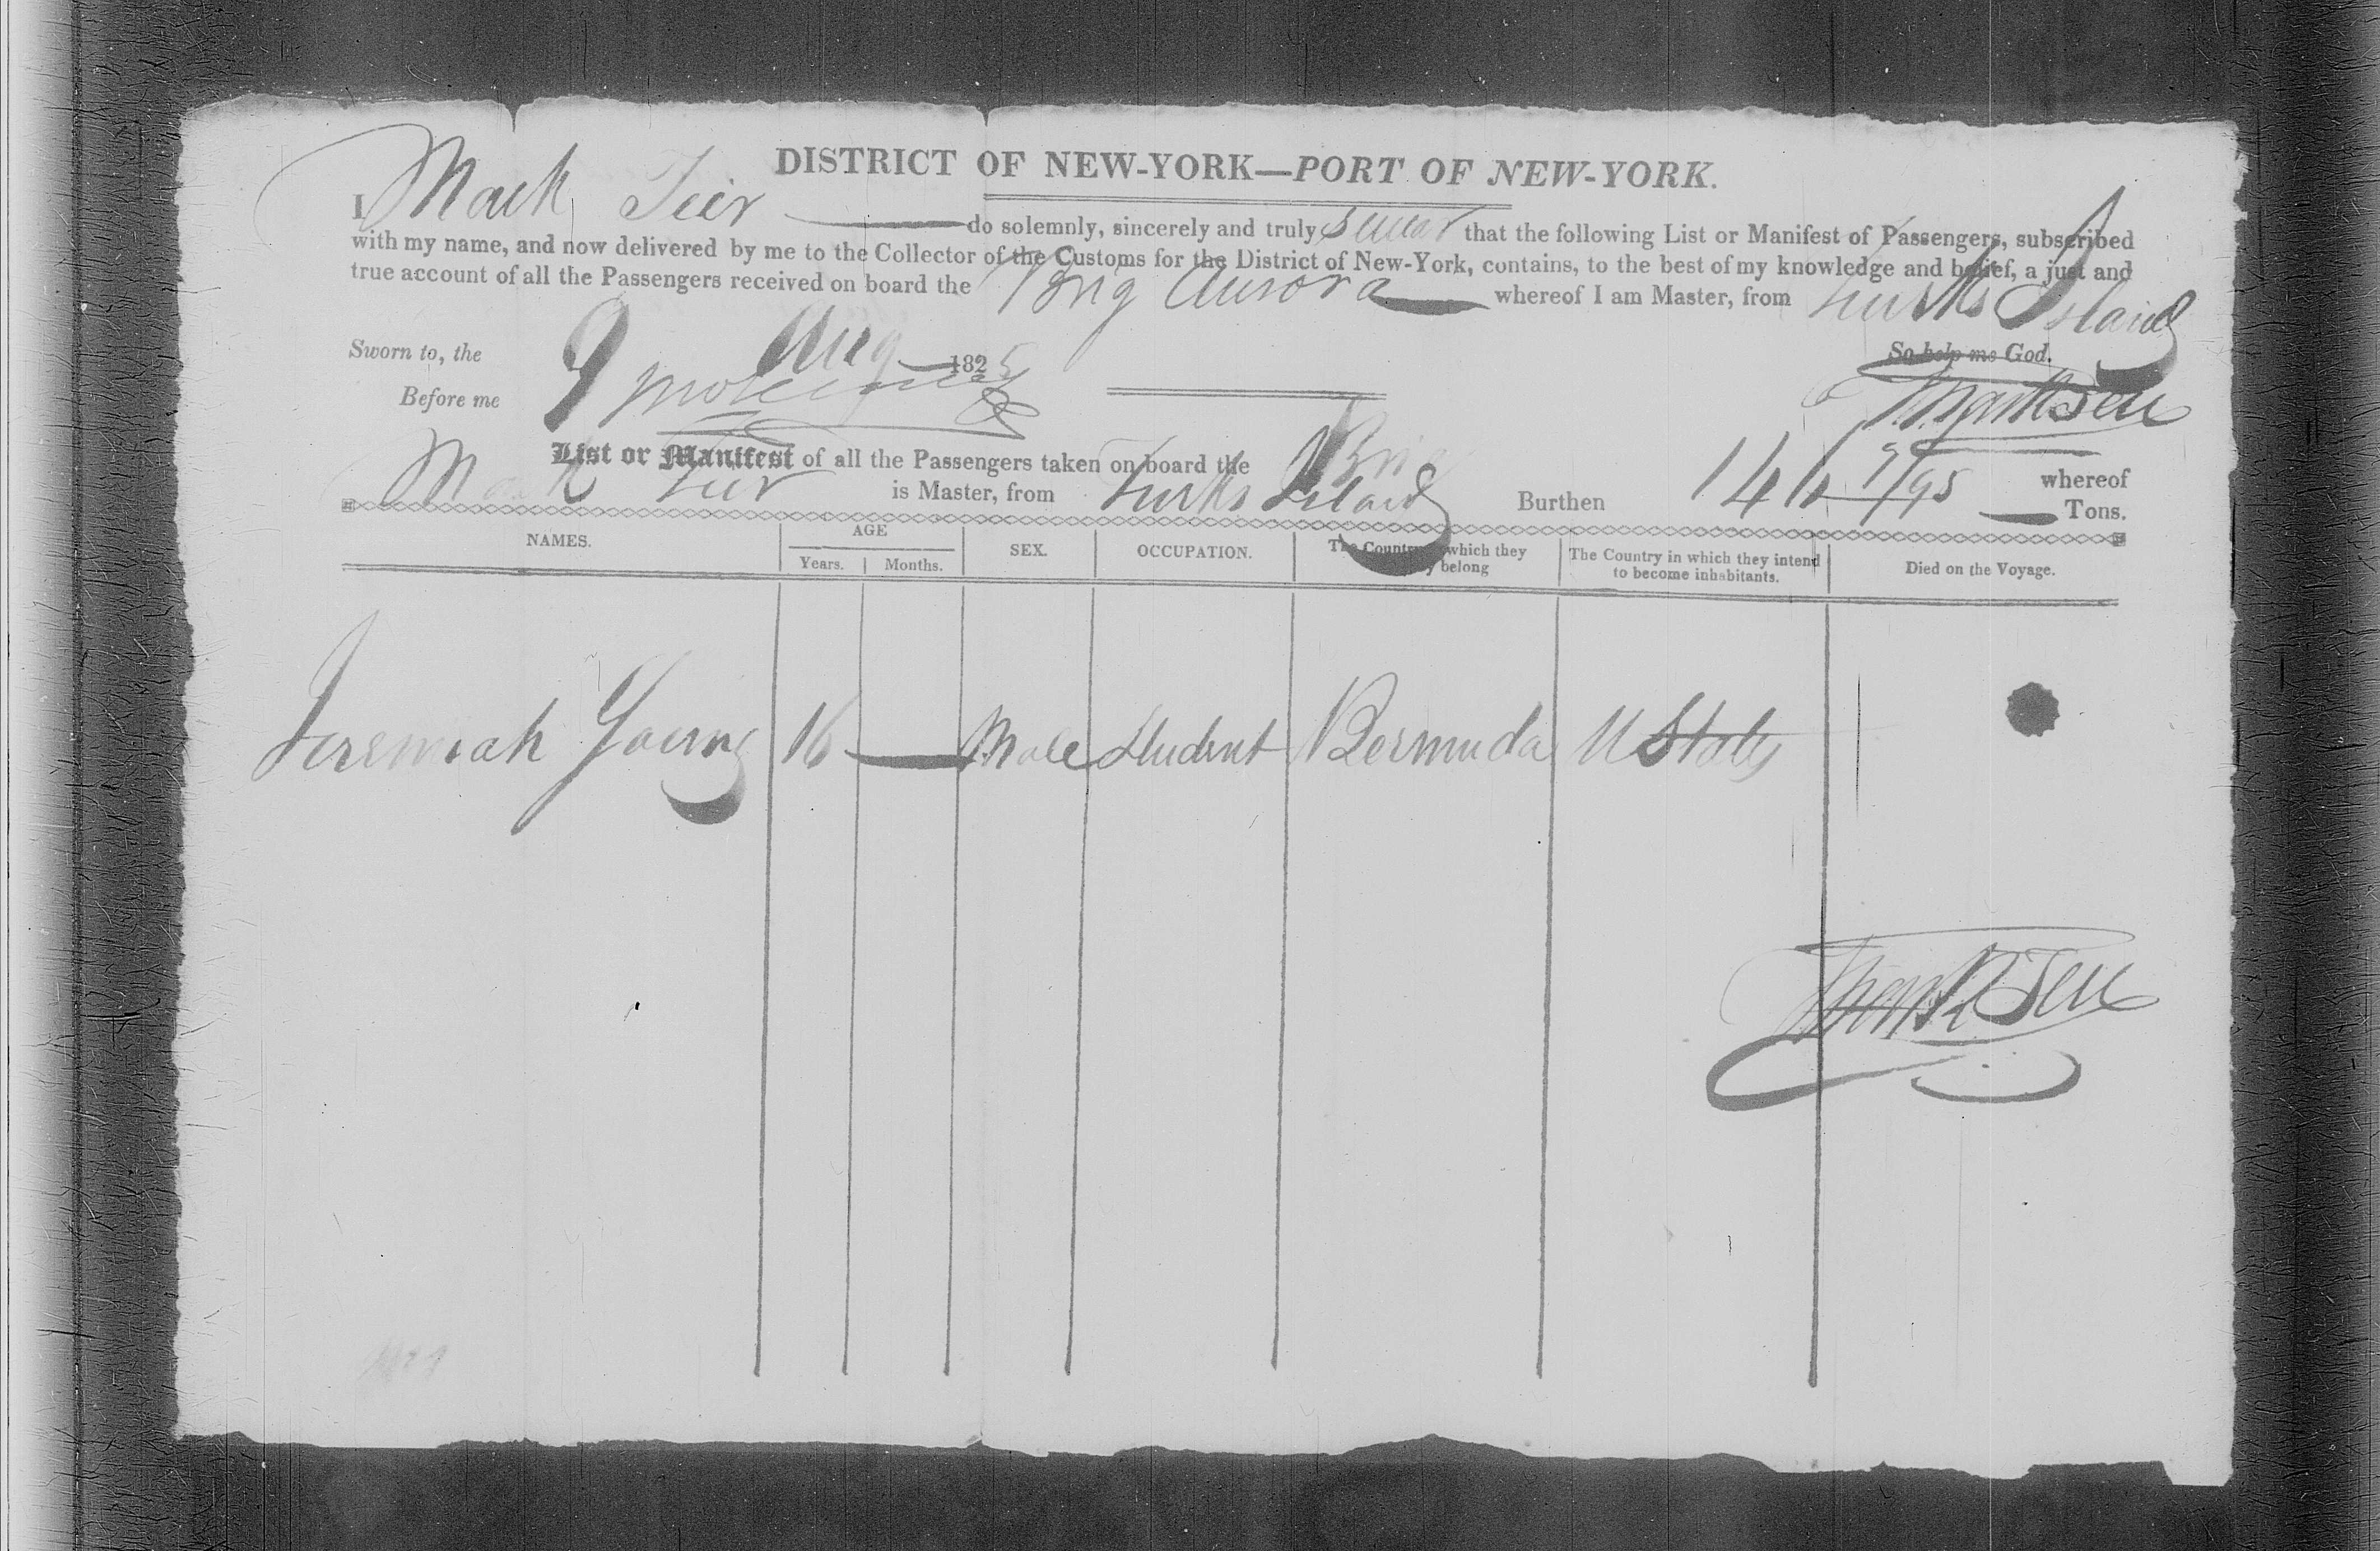 DISTRICT OF NEW-YORK—PORT OF NEW-YORK.
I Mark Teer do solemnly, sincerely and truly swear that the following List or Manifest of Passengers, subscribed
with my name, and now delivered by me to the Collector of the Customs for the District of New-York, contains, to the best of my knowledge and belief, a just and
true account of all the Passengers received on board the Brig Aurora whereof I am Master, from Turks Island
Sworn to, the 9 Aug 1825 So help me God.
Before me Mark Teer
List or Manifest of all the Passengers taken on board the Brig whereof
Mark Teer is Master, from Turks Island Burthen 146 9/95 Tons.
NAMES. AGE Years. Months. SEX. OCCUPATION. The Country which they belong The Country in which they intend to become inhabitants. Died on the Voyage.
Jeremiah Young 16 Male Student Bermuda U States
Mark Teer